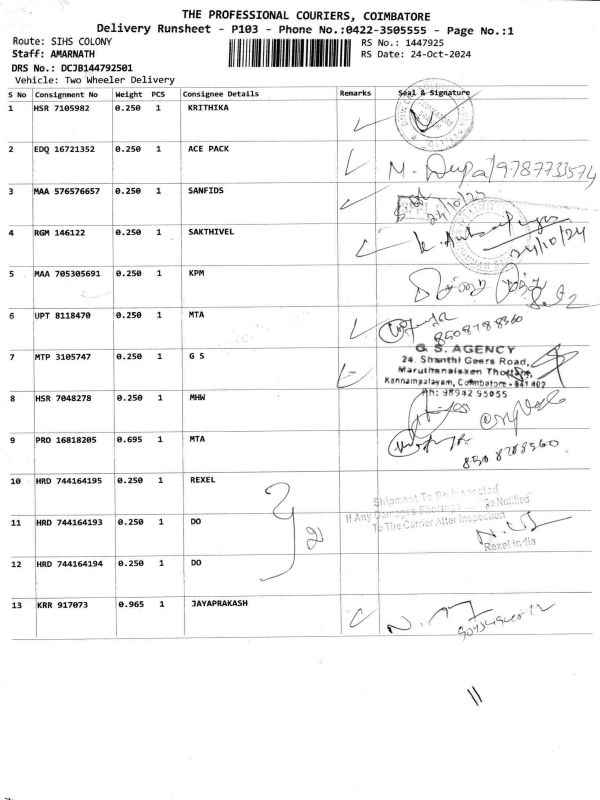 THE PROFESSIONAL COURIERS, COIMBATORE
Delivery Runsheet - P103 - Phone No.:0422-3505555 - Page No.:1
Route: SIHS COLONY
RS No.: 1447925
Staff: AMARNATH
RS Date: 24-Oct-2024
DRS No.: DCJB144792501
Vehicle: Two Wheeler Delivery
S No Consignment No Weight PCS Consignee Details Remarks Seal & Signature
1 HSR 7105982 0.250 1 KRITHIKA
2 EDQ 16721352 0.250 1 ACE PACK
9787733574
3 MAA 576576657 0.250 1 SANFIDS
24/10/24
4 RGM 146122 0.250 1 SAKTHIVEL
24/10/24
5 MAA 705305691 0.250 1 KPM
6 UPT 8118470 0.250 1 MTA
8508788360
7 MTP 3105747 0.250 1 G S
G. S. AGENCY
24. Shanthi Gears Road,
Kannampalayam, Coimbatore - 641 402
Ph: 98942 95055
8 HSR 7048278 0.250 1 MHW
9 PRO 16818205 0.695 1 MTA
8508788360
10 HRD 744164195 0.250 1 REXEL
Shipment To Be Inspected
If Any Damages Shortage Go Notified
To The Carrier After Inspection
11 HRD 744164193 0.250 1 DO
Rexel India
12 HRD 744164194 0.250 1 DO
13 KRR 917073 0.965 1 JAYAPRAKASH
11